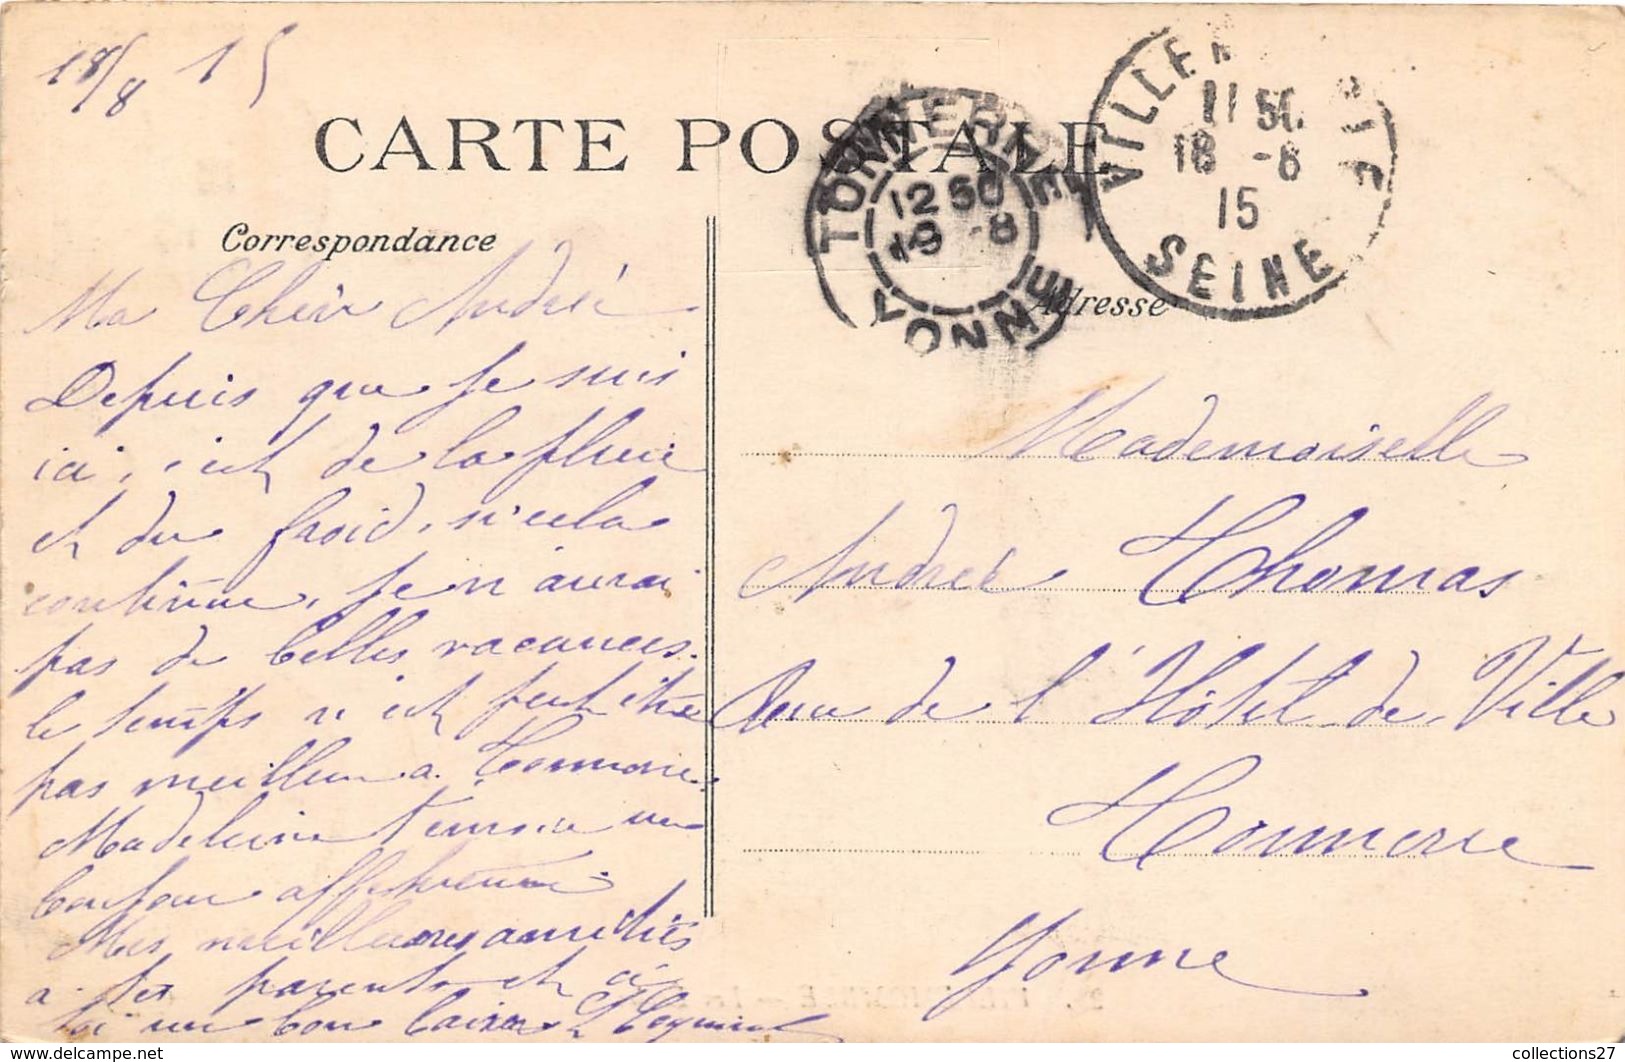 18/8 15
CARTE POSTALE
TONNERRE
12 50
19 -8
YONNE
11 50
18 -8
15
SEINE
Correspondance
Adresse
Ma Chère Andrée
Depuis que je suis
ici, c'est de la pluie
et du froid, si cela
continue, je n'aurai
pas de belles vacances.
le temps n'est peut être
pas meilleur a Tonnerre
Madeleine t'envoie un
bonjour affectueux
Mes meilleures amitiés
a tes parents et à
toi un bon baiser
Mademoiselle
Andrée Thomas
Rue de l'Hôtel de Ville
Tonnerre
Yonne
https://www.delcampe.net
collections27